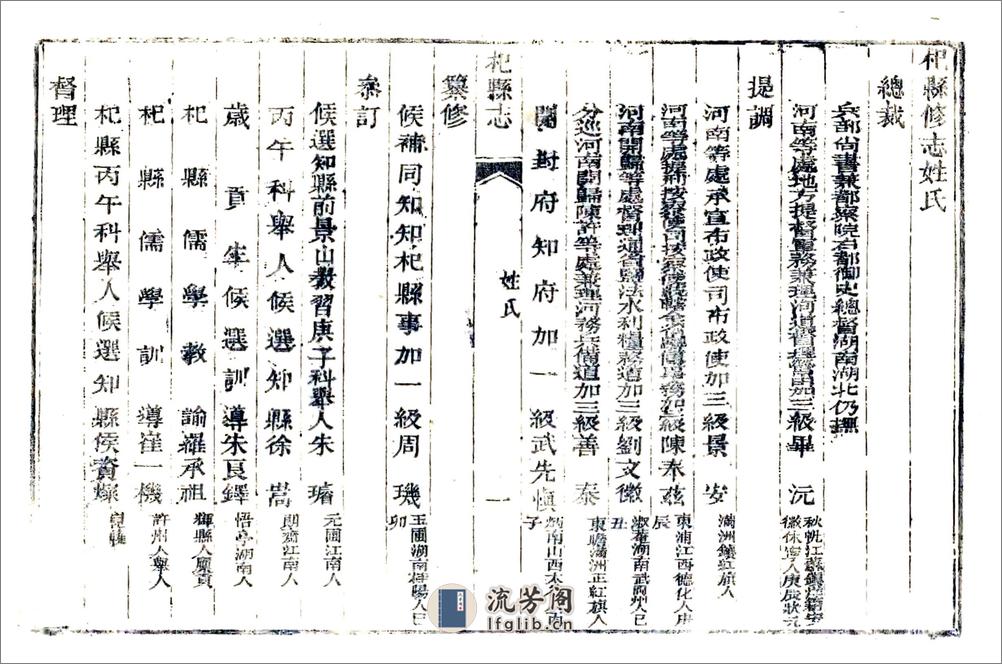 杞縣修志姓氏
總裁
兵部尚書兼都察院右都御史總督湖南湖北仍理
河南等處地方提督軍務兼理河道加三級畢沅
秋帆江蘇鎮洋籍安徽休寧人庚辰狀元
提調
河南等處承宣布政使司布政使加三級景安
滿洲鑲紅旗人
河南等處提刑按察使司按察使加三級陳奉茲
東浦江西德化人庚辰
河南開歸等處督理通省鹽法水利糧務道加三級劉文徽
淑菴湖南武岡州人己丑
分巡河南開歸陳許等處兼理河務兵備道加三級善泰
東瞻滿洲正紅旗人
開封府知府加一級武先慎
山西太子
杞縣志
姓氏
一
纂修
候補同知知杞縣事加一級周璣
玉圃湖南桂陽人己卯
叅訂
候選知縣前景山教習庚子科舉人朱璿
元圃江南人
丙午科舉人候選知縣徐嵩
朗齋江南人
歲貢生候選訓導朱良鐸
悟亭湖南人
杞縣儒學教諭羅承祖
輝縣人廩貢
杞縣儒學訓導崔一機
許州人舉人
杞縣丙午科舉人候選知縣侯資燦
督理
流芳阁
lfglib.cn